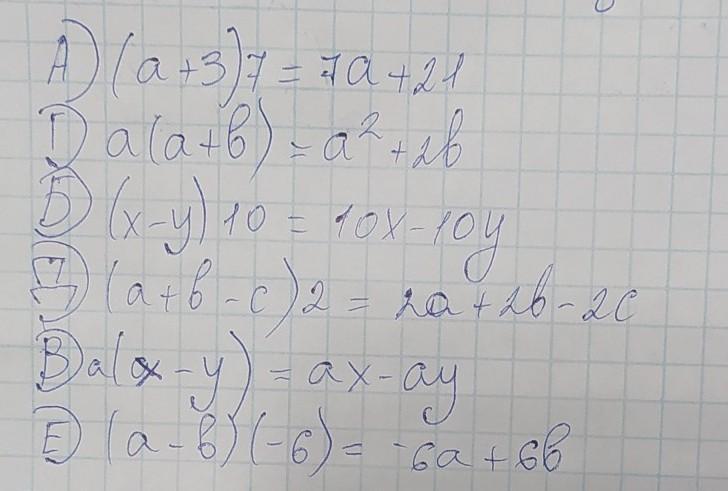 А) (a+3)7 = 7a+21
Г) a(a+b) = a²+2b
Б) (x-y)10 = 10x-10y
Д) (a+b-c)2 = 2a+2b-2c
В) a(x-y) = ax-ay
Е) (a-b)(-6) = -6a+6b